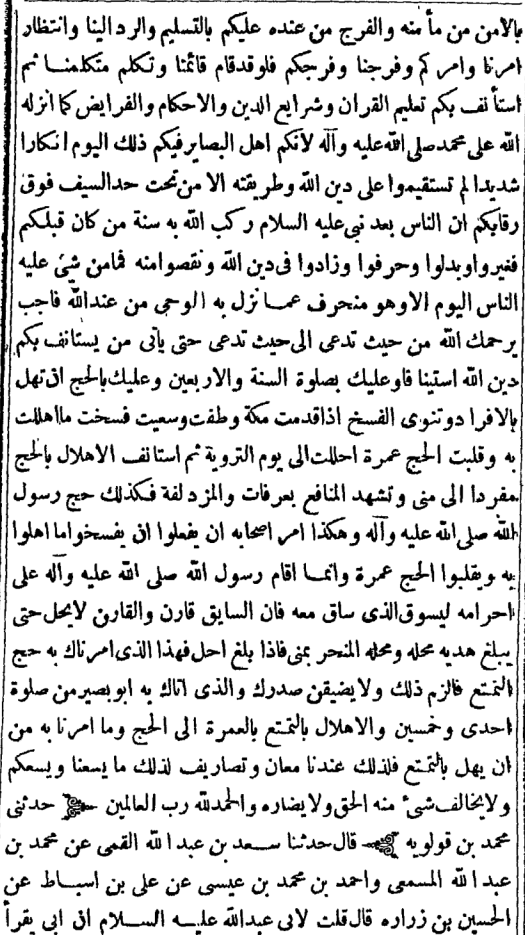 بالامن من مأمنه والفرج من عنده عليكم بالتسليم والرد الينا وانتظار
امرنا وامركم وفرجنا وفرجكم فلوقدقام قائمنا وتكلم متكلمنا ثم
استأنف بكم تعليم القران وشرايع الدين والاحكام والفرايض كما انزله
الله على محمدصلى الله عليه وآله لأنكم اهل البصايرفيكم ذلك اليوم انكارا
شديدالم تستقيموا على دين الله وطريقته الا من تحت حدالسيف فوق
رقابكم ان الناس بعد نبى عليه السلام ركب الله به سنة من كان قبلكم
فغيرواوبدلوا وحرفوا وزادوا فى دين الله ونقصوامنه فمامن شئ عليه
الناس اليوم الاوهو منحرف عمانزل به الوحى من عندالله فاجب
يرحمك الله من حيث تدعى الى حيث تدعى حتى يأتى من يستانف بكم
دين الله استينا فاوعليك بصلوة الستة والاربعين وعليك بالحج ان تهل
بالافرا دوتنوى الفسخ اذاقدمت مكة وطفت وسعيت فسخت مااهللت
به وقلبت الحج عمرة احللت الى يوم التروية ثم استانف الاهلال بالحج
مفردا الى منى وتشهد المنافع بعرفات والمزدلفة فكذلك حج رسول
الله صلى الله عليه وآله وهكذا امر اصحابه ان يفعلوا ان يفسخواما اهلوا
به ويقلبوا الحج عمرة وانما اقام رسول الله صلى الله عليه وآله على
احرامه ليسوق الذى ساق معه فان السايق قارن والقارن لايحل حتى
يبلغ هديه محله ومحله المنحر بمنى فاذا بلغ احل فهذا الذى امرناك به حج
التمتع فالزم ذلك ولايضيقن صدرك والذى اتاك به ابوبصيرمن صلوة
احدى وخمسين والاهلال بالتمتع بالعمرة الى الحج وما امرنا به من
ان يهل بالتمتع فلذلك عندنا معان وتصاريف لذلك ما يسعنا ويسعكم
ولايخالف شئ منه الحق ولايضاره والحمدلله رب العالمين حدثنى
محمد بن قولويه قال حدثنا سعد بن عبدالله القمى عن محمد بن
عبدالله المسمعى واحمد بن محمد بن عيسى عن على بن اسباط عن
الحسين بن زراره قال قلت لابى عبدالله عليه السلام ان ابى يقرأ